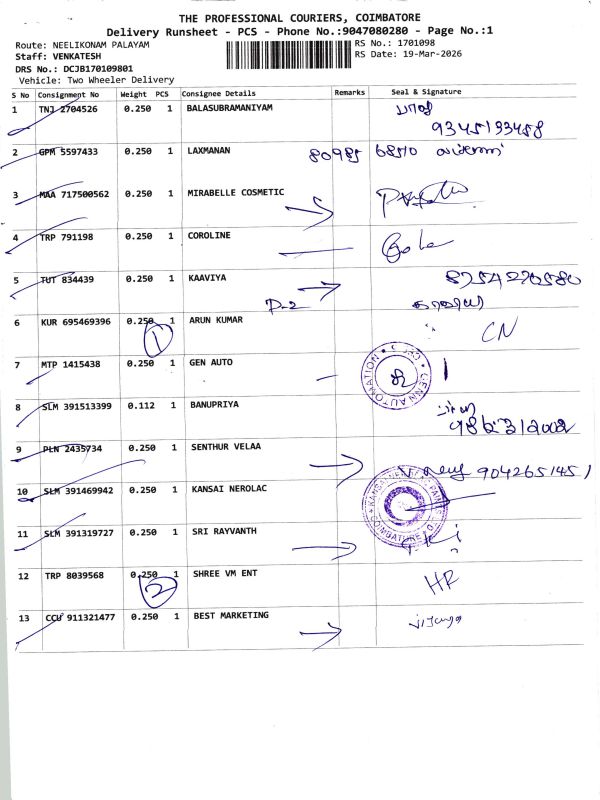 THE PROFESSIONAL COURIERS, COIMBATORE
Delivery Runsheet - PCS - Phone No.:9047080280 - Page No.:1
Route: NEELIKONAM PALAYAM
RS No.: 1701098
Staff: VENKATESH
RS Date: 19-Mar-2026
DRS No.: DCJB170109801
Vehicle: Two Wheeler Delivery
S No Consignment No Weight PCS Consignee Details Remarks Seal & Signature
1 TNJ 2704526 0.250 1 BALASUBRAMANIYAM
9345133458
2 GPM 5597433 0.250 1 LAXMANAN 80985 68510
3 MAA 717500562 0.250 1 MIRABELLE COSMETIC
4 TRP 791198 0.250 1 COROLINE
5 TUT 834439 0.250 1 KAAVIYA 8754270580
P-2
6 KUR 695469396 0.250 1 ARUN KUMAR CN
1
7 MTP 1415438 0.250 1 GEN AUTO
GENN AUTOMATION
8 SLM 391513399 0.112 1 BANUPRIYA
9 PLN 2435734 0.250 1 SENTHUR VELAA
9042651451
10 SLM 391469942 0.250 1 KANSAI NEROLAC
COIMBATORE
11 SLM 391319727 0.250 1 SRI RAYVANTH
12 TRP 8039568 0.250 1 SHREE VM ENT HR
2
13 CCU 911321477 0.250 1 BEST MARKETING